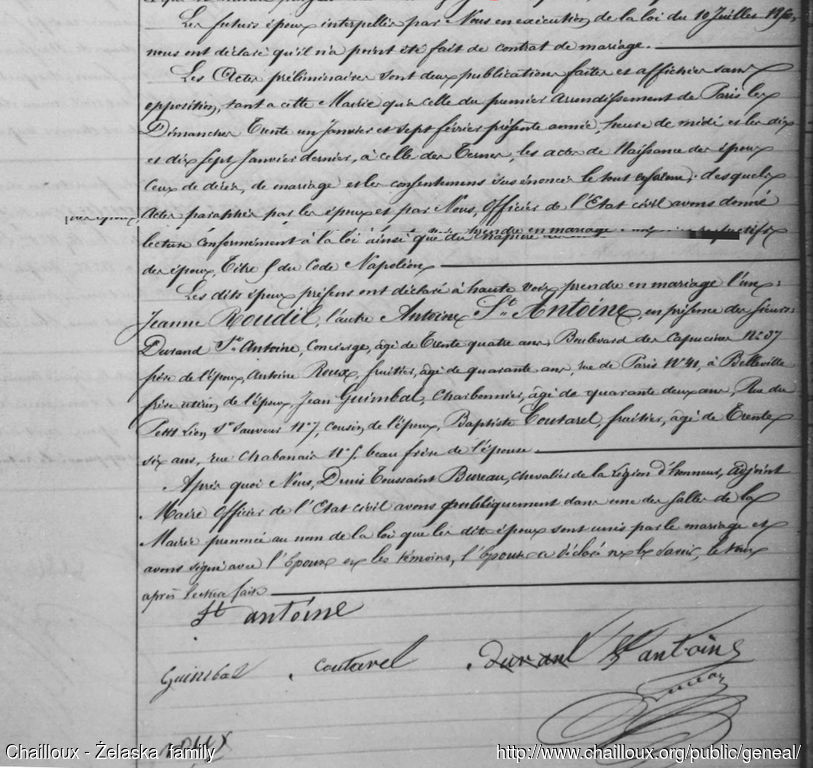 Les futurs époux interpellés par Nous en exécution de la loi du 10 Juillet 1850,
nous ont déclaré qu'il n'a point été fait de contrat de mariage.
Les Actes préliminaires sont deux publications faites et affichées sans
opposition, tant a cette Mairie qu'a celle du premier arrondissement de Paris les
Dimanches Trente un Janvier et sept février présente année, heure de midi et les dix
et dix sept Janvier dernier, à celle des Ternes, les actes de Naissance des époux
ceux de décès, de mariage et les consentemens sus énoncés le tout en forme; desquels
Actes paraphés par les époux et par Nous, Officier de l'Etat civil avons donné
lecture conformément à la loi ainsi que du
des époux, Titre 5 du Code Napoléon
Les dits époux présens ont déclaré à haute voix prendre en mariage l'un:
Jeanne Roudil, l'autre Antoine St Antoine, en présence des sieurs:
Durand St Antoine, concierge, âgé de Trente quatre ans, Boulevard des Capucines No 37
frère de l'époux, Antoine Roux, fruitier, âgé de quarante ans, rue de Paris No 41, à Belleville
frère utérin de l'époux, Jean Guimbal, Charbonnier, âgé de quarante deux ans, Rue du
Petit Lion St Sauveur No 7, cousin de l'époux, Baptiste Coutarel, fruitier, âgé de Trente
six ans, rue Chabanais No 5 beau frère de l'épouse
Après quoi Nous, Denis Toussaint Bureau, chevalier de la Légion d'honneur, adjoint
Maire Officier de l'Etat civil avons publiquement dans une des salles de la
Mairie prononcé au nom de la loi que les dits époux sont unis par le mariage et
avons signé avec l'Epoux et les témoins, l'Epouse a déclaré ne le savoir, le tout
après lecture faite
St antoine
Guimbal coutarel durand St antoine
roux
Chailloux - Želaska family http://www.chailloux.org/public/geneal/